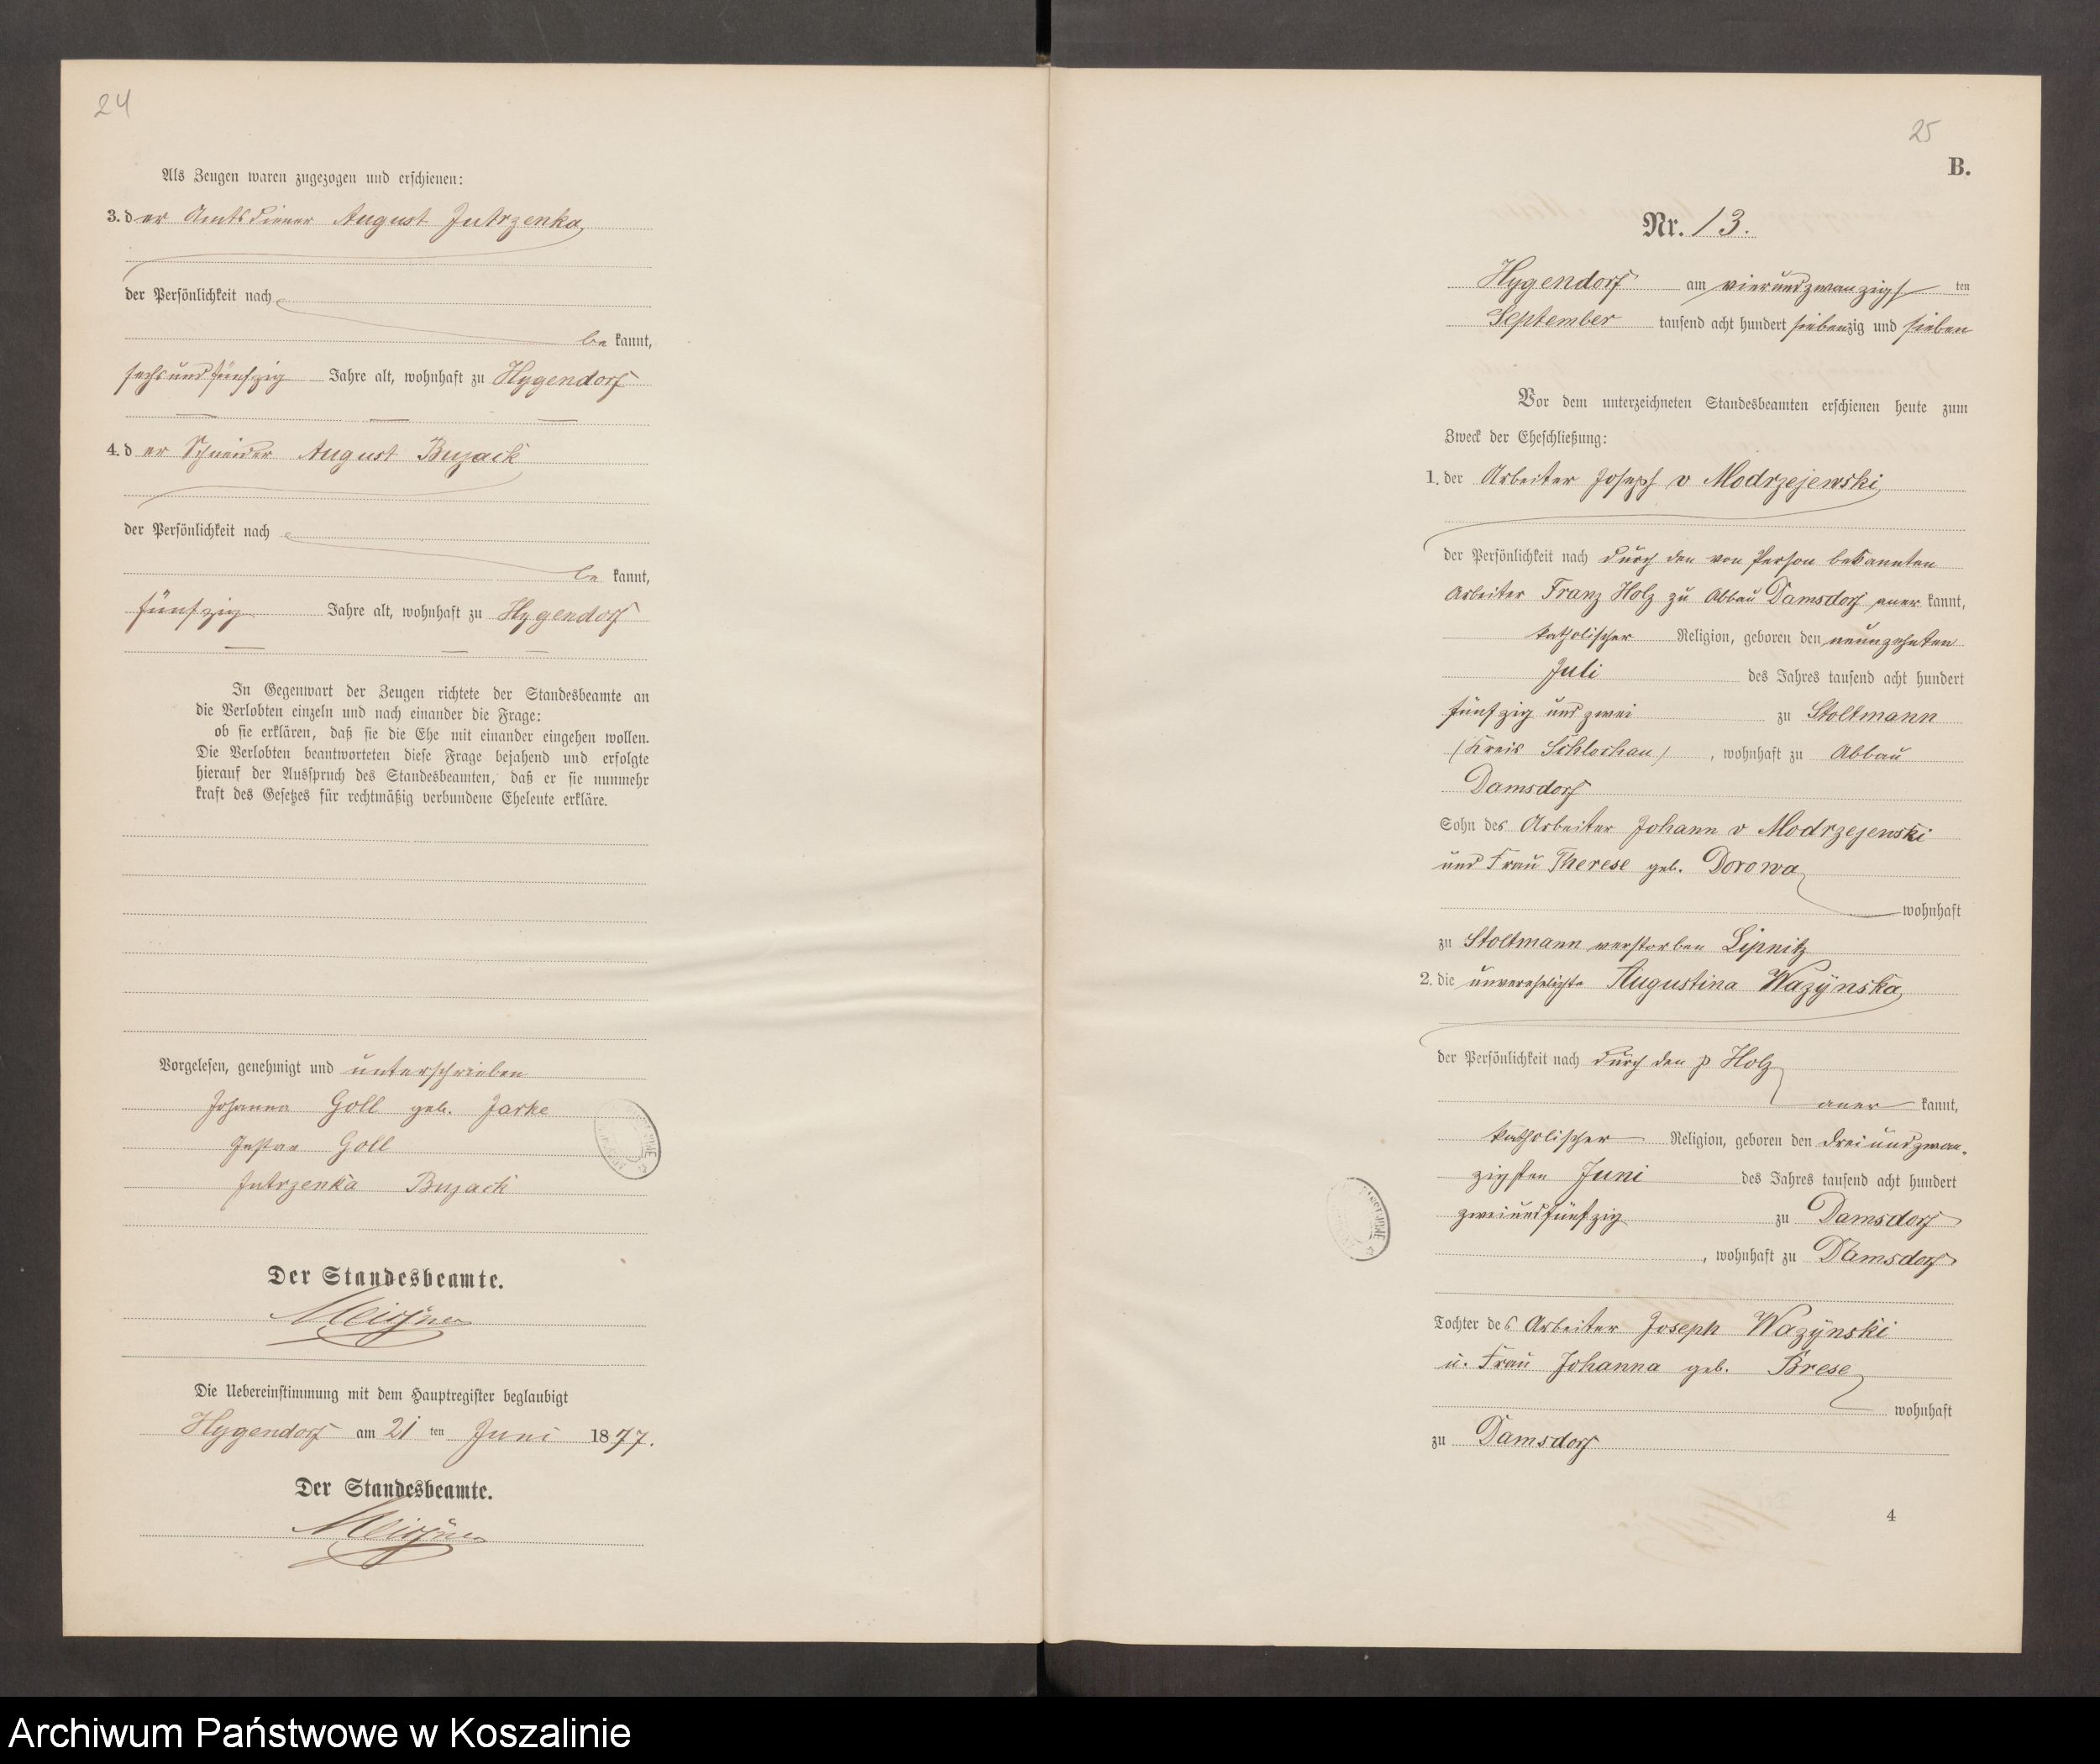 24
Als Zeugen waren zugezogen und erschienen:
3. d er Amtsdiener August Jutrzenka,
der Persönlichkeit nach
be kannt,
sechsundfünfzig Jahre alt, wohnhaft zu Hygendorf
4. d er Schneider August Buzack
der Persönlichkeit nach
be kannt,
fünfzig Jahre alt, wohnhaft zu Hygendorf
In Gegenwart der Zeugen richtete der Standesbeamte an
die Verlobten einzeln und nach einander die Frage:
ob sie erklären, daß sie die Ehe mit einander eingehen wollen.
Die Verlobten beantworteten diese Frage bejahend und erfolgte
hierauf der Ausspruch des Standesbeamten, daß er sie nunmehr
kraft des Gesetzes für rechtmäßig verbundene Eheleute erkläre.
Vorgelesen, genehmigt und unterschrieben
Johanna Goll geb. Jarke
Gustav Goll
Jutrzenka Buzack
Der Standesbeamte.
Die Uebereinstimmung mit dem Hauptregister beglaubigt
Hygendorf am 21 ten Juni 1877.
Der Standesbeamte.
25
B.
Nr. 13.
Hygendorf am vierundzwanzigsten
September tausend acht hundert siebenzig und sieben
Vor dem unterzeichneten Standesbeamten erschienen heute zum
Zweck der Eheschließung:
1. der Arbeiter Joseph v Modrzejewski,
der Persönlichkeit nach durch den von Person bekannten
Arbeiter Franz Holz zu Abbau Damsdorf aner kannt,
katholischer Religion, geboren den neunzehnten
Juli des Jahres tausend acht hundert
fünfzig und zwei zu Stoltmann
(Kreis Schlochau), wohnhaft zu Abbau
Damsdorf
Sohn des Arbeiter Johann v Modrzejewski
und Frau Therese geb. Dorowa
wohnhaft
zu Stoltmann verstorben Lipnitz
2. die unverehelichte Augustina Wazÿnska,
der Persönlichkeit nach durch den p Holz
aner kannt,
katholischer Religion, geboren den dreiundzwan-
zigsten Juni des Jahres tausend acht hundert
zweiundfünfzig zu Damsdorf
, wohnhaft zu Damsdorf
Tochter des Arbeiter Joseph Wazÿnski
u. Frau Johanna geb. Brese
wohnhaft
zu Damsdorf
4
Archiwum Państwowe w Koszalinie